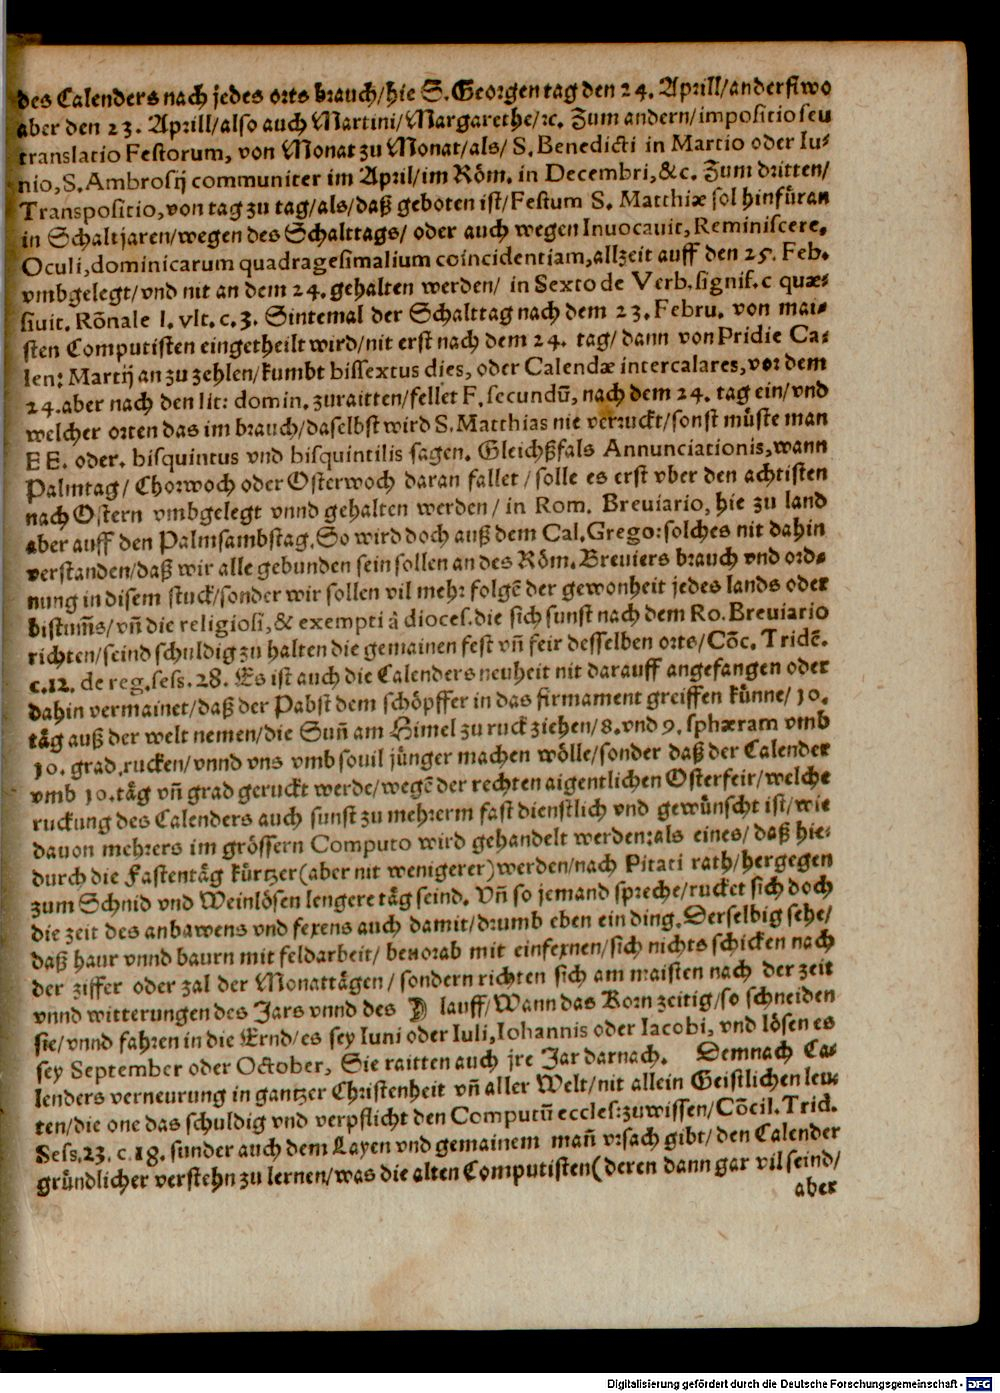 des Calenders nach jedes orts brauch/hie S. Georgen tag den 24. Aprill/anderstwo
aber den 23. Aprill/also auch Martini/Margarethe/ꝛc. Zum andern/impositio seu
translatio Festorum, von Monat zu Monat/als/ S. Benedicti in Martio oder Iu-
nio, S. Ambrosij communiter im April/im Röm. in Decembri, &c. Zum dritten/
Transpositio, von tag zu tag/als/daß geboten ist/Festum S. Matthiæ sol hinfüran
in Schaltjaren/wegen des Schalttags/ oder auch wegen Inuocauit, Reminiscere,
Oculi, dominicarum quadragesimalium coincidentiam, allzeit auff den 25. Feb.
vmbgelegt/vnd nit an dem 24. gehalten werden/ in Sexto de Verb. signif. c quæ-
siuit. Rõnale l. vlt. c. 3. Sintemal der Schalttag nach dem 23. Febru. von mai-
sten Computisten eingetheilt wird/nit erst nach dem 24. tag/ dann von Pridie Ca-
len: Martij an zu zehlen/kumbt bissextus dies, oder Calendæ intercalares, vor dem
24. aber nach den lit: domin. zuraitten/fellet F. secundũ, nach dem 24. tag ein/vnd
welcher orten das im brauch/daselbst wird S. Matthias nie verruckt/sonst müste man
E E. oder. bisquintus vnd bisquintilis sagen. Gleichßfals Annunciationis, wann
Palmtag/ Chorwoch oder Osterwoch daran fallet/solle es erst vber den achtisten
nach Ostern vmbgelegt vnnd gehalten werden/ in Rom. Breviario, hie zu land
aber auff den Palmsambstag. So wird doch auß dem Cal. Grego: solches nit dahin
verstanden/daß wir alle gebunden sein sollen an des Röm. Breuiers brauch vnd ord-
nung in disem stuck/sonder wir sollen vil mehr folgẽ der gewonheit jedes lands oder
bistum̃s/vñ die religiosi, & exempti â dioces. die sich sunst nach dem Ro. Breviario
richten/seind schuldig zu halten die gemainen fest vñ feir desselben orts/Cõc. Tridẽ.
c. 12. de reg. sess. 28. Es ist auch die Calenders neuheit nit darauff angefangen oder
dahin vermainet/daß der Pabst dem schöpffer in das firmament greiffen künne/ 10.
täg auß der welt nemen/die Suñ am Himel zu ruck ziehen/8. vnd 9. sphæram vmb
10. grad rucken/vnnd vns vmb souil jünger machen wölle/sonder daß der Calender
vmb 10. täg vñ grad geruckt werde/wegẽ der rechten aigentlichen Osterfeir/welche
ruckung des Calenders auch sunst zu mehrerm fast dienstlich vnd gewünscht ist/wie
dauon mehrers im grössern Computo wird gehandelt werden: als eines/ daß hie-
durch die Fastentäg kürtzer(aber nit wenigerer)werden/nach Pitati rath/hergegen
zum Schnid vnd Weinlösen lengere täg seind. Vñ so jemand spreche/rucket sich doch
die zeit des anbawens vnd fexens auch damit/drumb eben ein ding. Derselbig sehe/
daß haur vnnd baurn mit feldarbeit/ beuorab mit einfexnen/sich nichts schicken nach
der ziffer oder zal der Monattägen/ sondern richten sich am maisten nach der zeit
vnnd witterungen des Jars vnnd des ☽ lauff/Wann das Korn zeitig/so schneiden
sie/vnnd fahren in die Ernd/es sey Iuni oder Iuli, Iohannis oder Iacobi, vnd lösen es
sey September oder October, Sie raitten auch jre Jar darnach. Demnach Ca-
lenders verneurung in gantzer Christenheit vñ aller Welt/nit allein Geistlichen leu-
ten/die one das schuldig vnd verpflicht den Computũ eccles: zuwissen/Cõcil. Trid.
Sess. 23. c. 18. sunder auch dem Layen vnd gemainem mañ vrsach gibt/ den Calender
gründlicher verstehn zu lernen/was die alten Computisten(deren dann gar vil seind/
aber
Digitalisierung gefördert durch die Deutsche Forschungsgemeinschaft - DFG